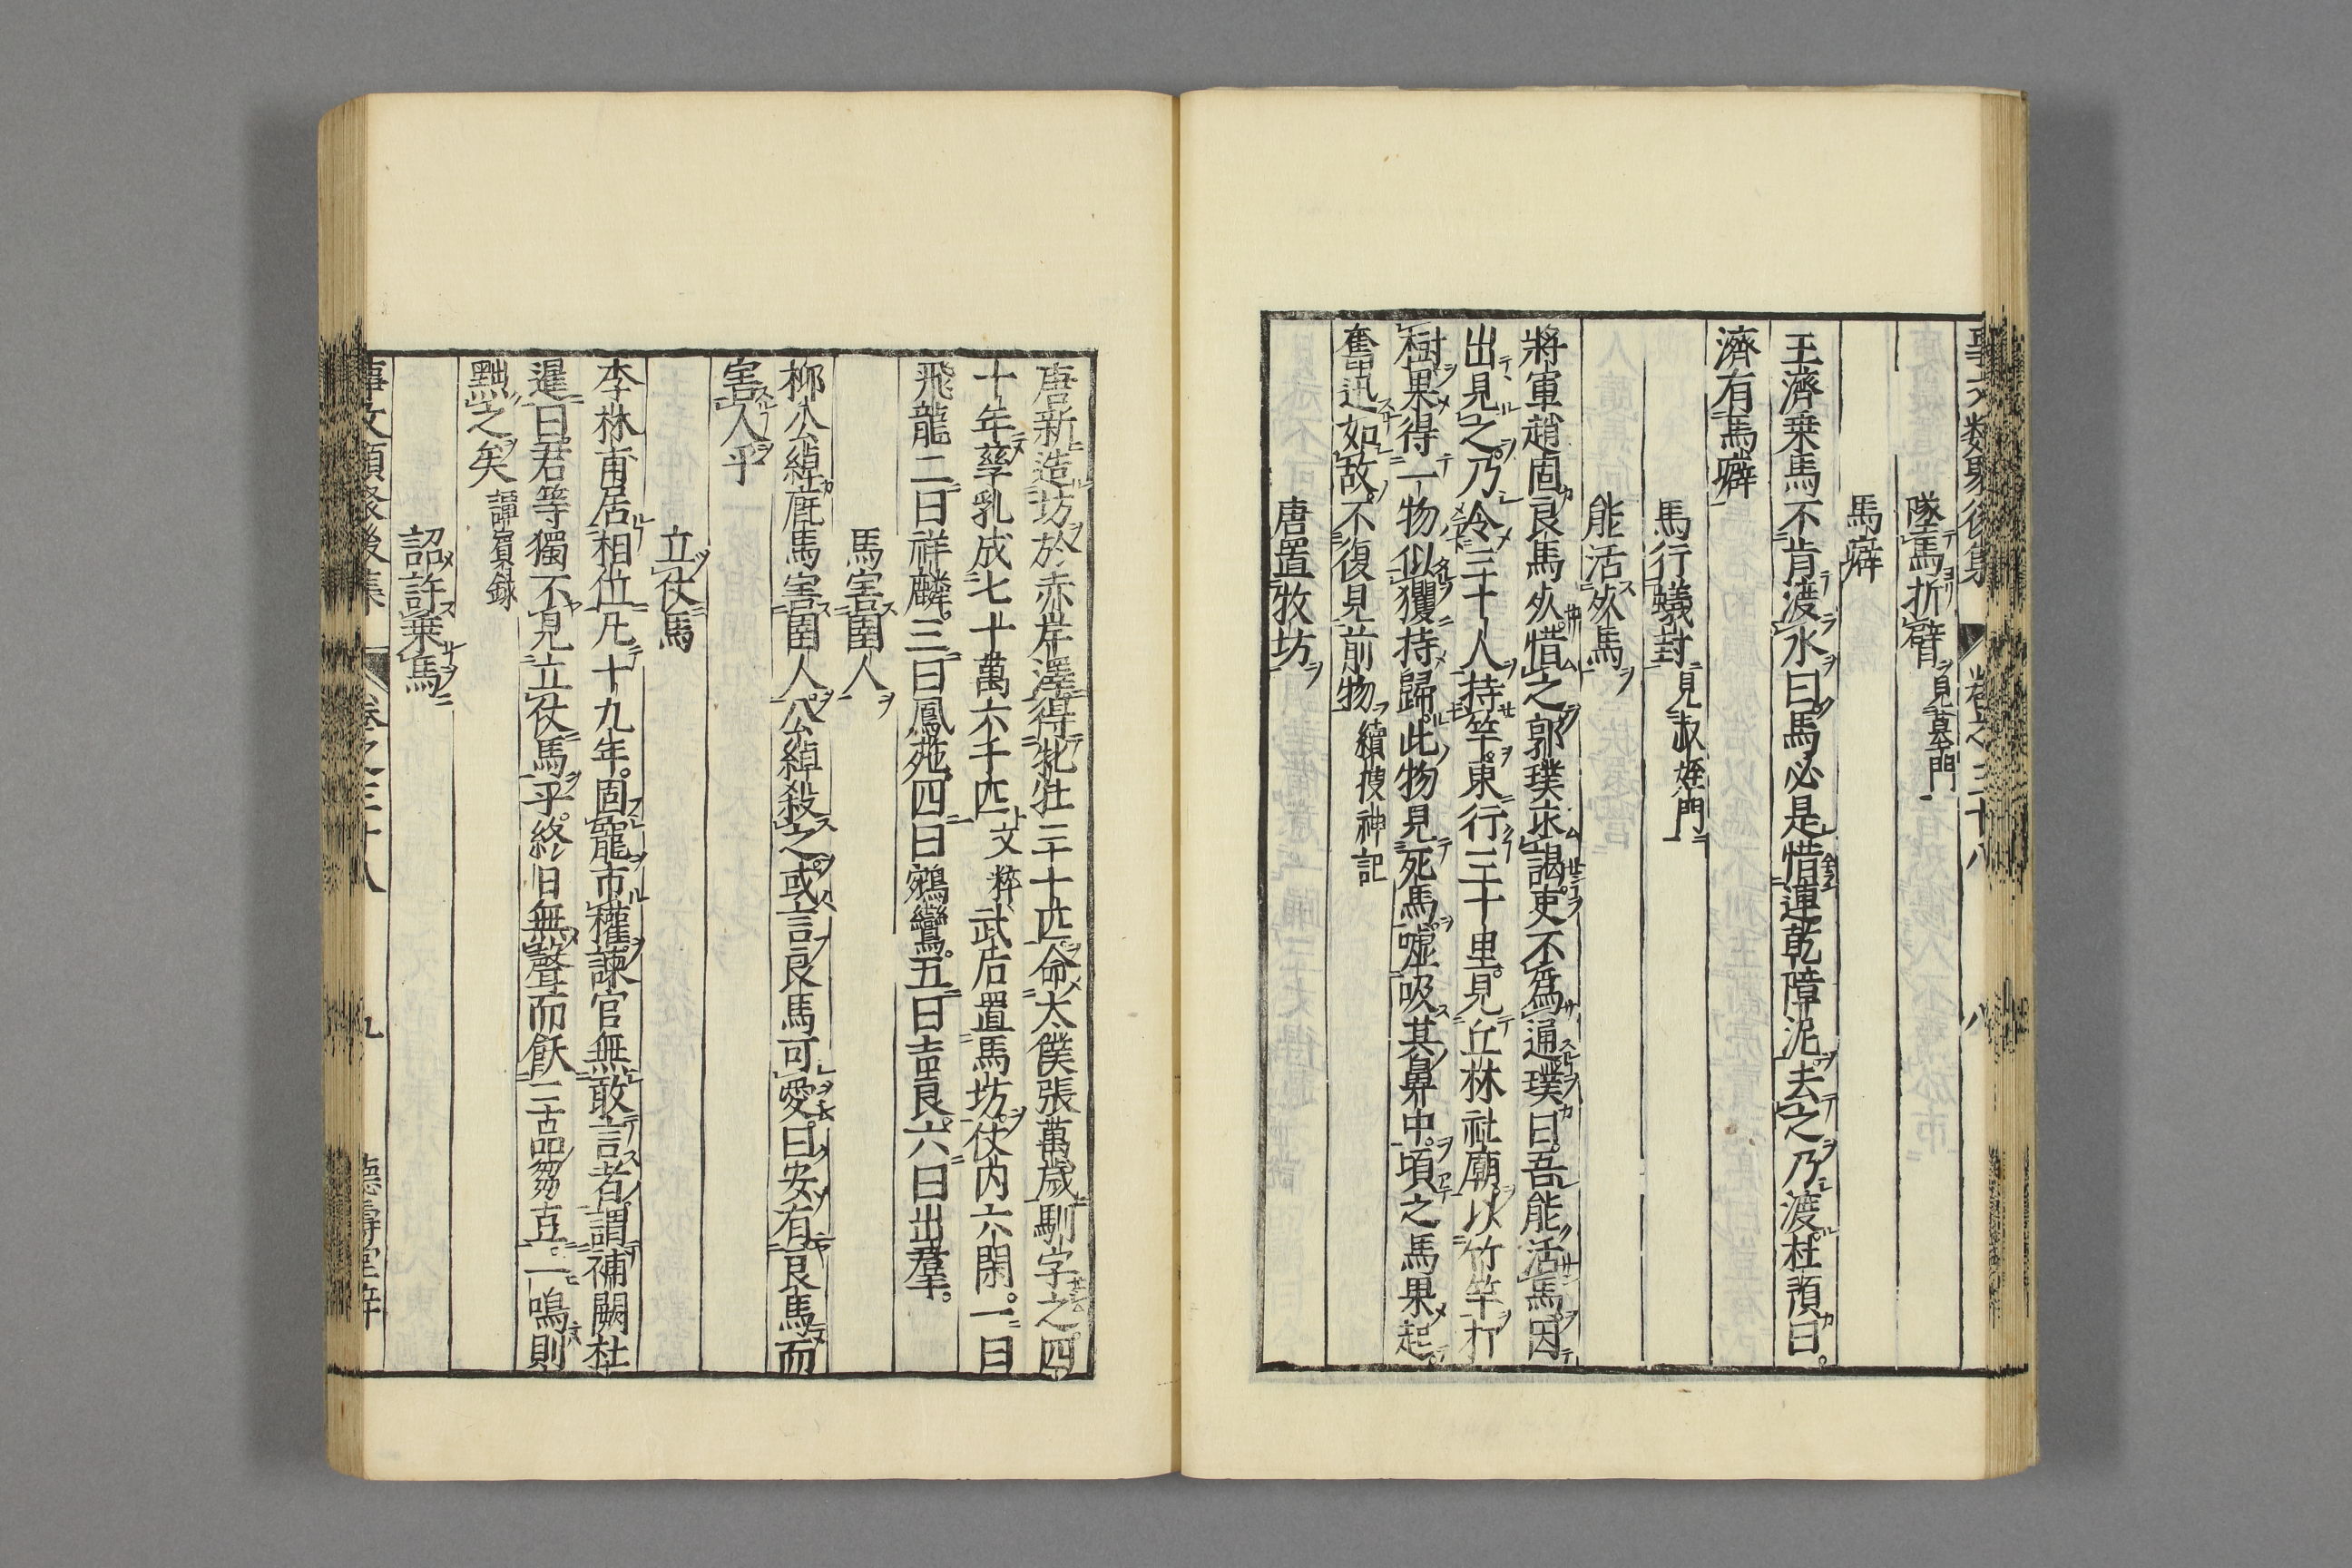 事文類聚後集 卷之三十八 八
墜馬折臂 見墓門
馬癖
王濟乗馬不肯渡水曰馬必是惜連乾障泥去之乃渡杜預曰
濟有馬癖
馬行蟻封 見叔姪門
能活死馬
將軍趙固良馬死惜之郭璞求謁吏不爲通璞曰吾能活馬因
出見之乃令三十人持竿東行三十里見丘林社廟以竹竿打
樹果得一物似玃持歸此物見死馬嘘吸其鼻中頃之馬果起
奮迅如故不復見前物 續搜神記
唐置牧坊
唐新造坊於赤岸澤得牝牡三千匹命太僕張萬歲馴字之四
十年孳乳成七十萬六千匹 文粹 武后置馬坊仗内六閑一曰
飛龍二曰祥麟三曰鳳苑四曰鵷鸞五曰吉良六曰出羣
馬害圉人
柳公綽廐馬害圉人公綽殺之或言良馬可愛曰安有良馬而
害人乎
立仗馬
李林甫居相位凡十九年固寵市權諫官無敢言者謂補闕杜
暹曰君等獨不見立仗馬乎終日無聲而飫三品芻豆一鳴則
黜之矣 譚賓録
詔許乗馬
事文類聚後集 卷之三十八 九 德壽堂梓